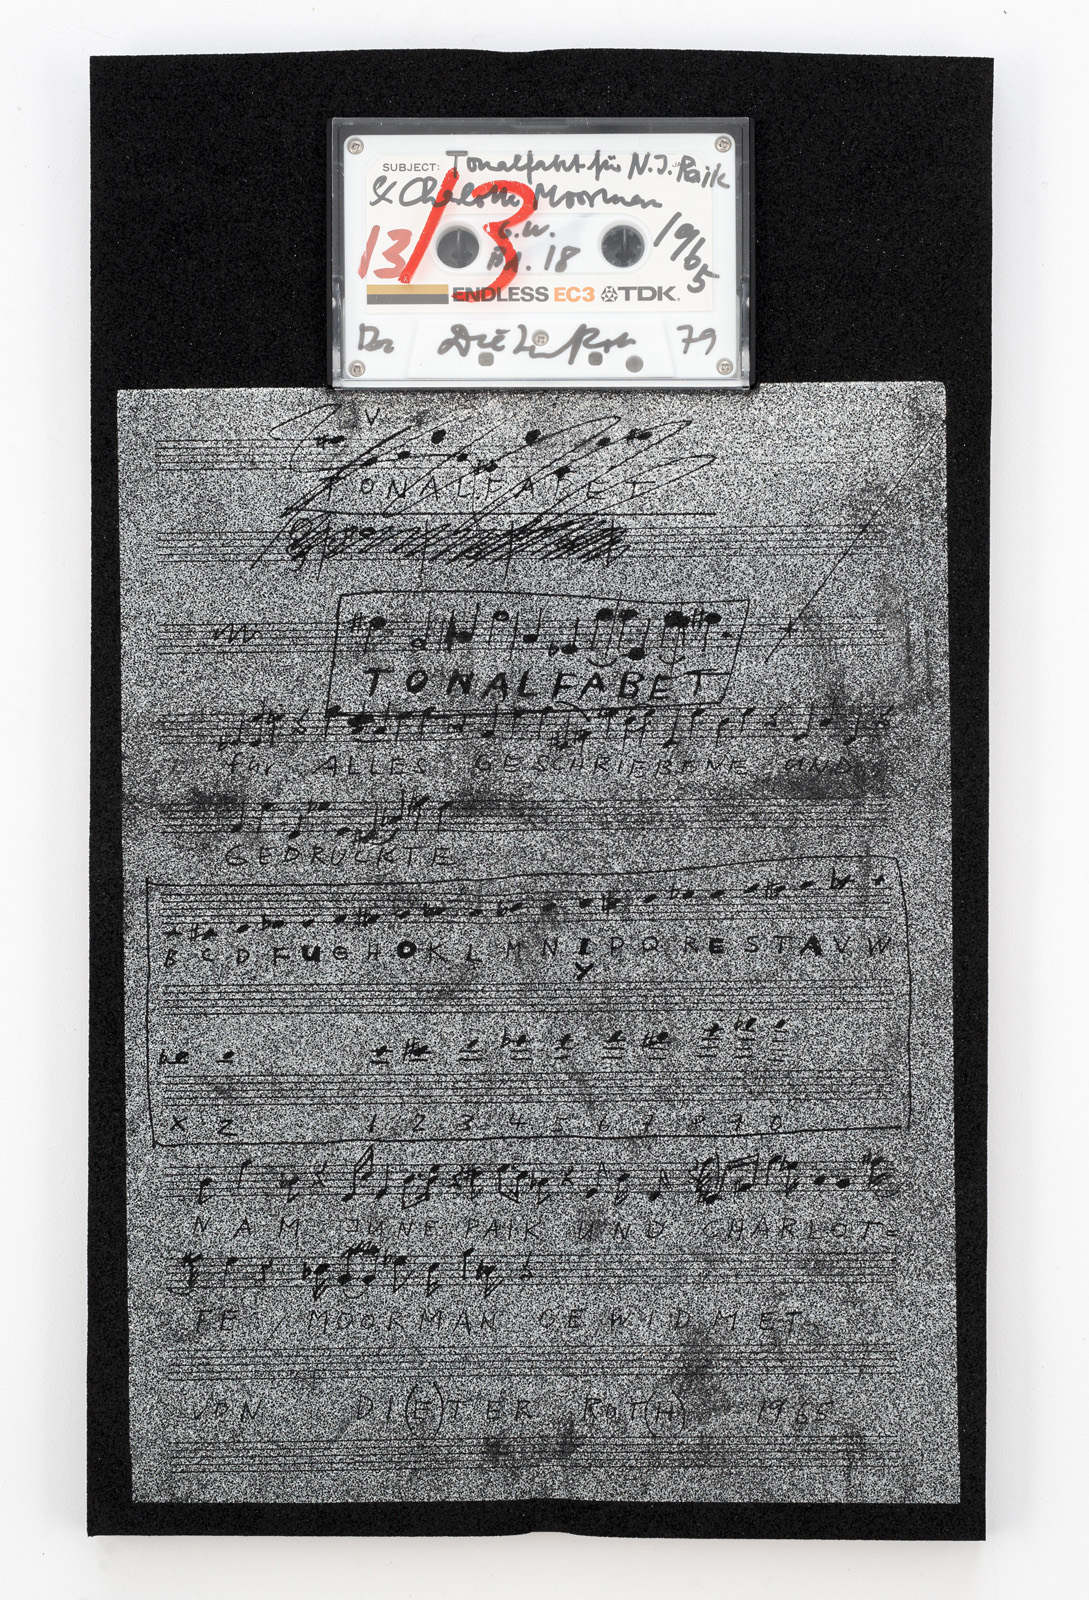 SUBJECT: Tonalfabet für N.J. Paik
& Charlotte Moorman
13 13 G.W. 1965
Bd. 18
ENDLESS EC3 TDK
79
V
TONALFABET
TONALFABET
für ALLES GESCHRIEBENE UND
GEDRUCKTE
B C D F U G H O K L M N I P Q R E S T A V W
Y
X Z 1 2 3 4 5 6 7 8 9 0
NAM JUNE PAIK UND CHARLOT=
TE MOORMAN GEWIDMET
VON DI(E)TER ROT(H) 1965